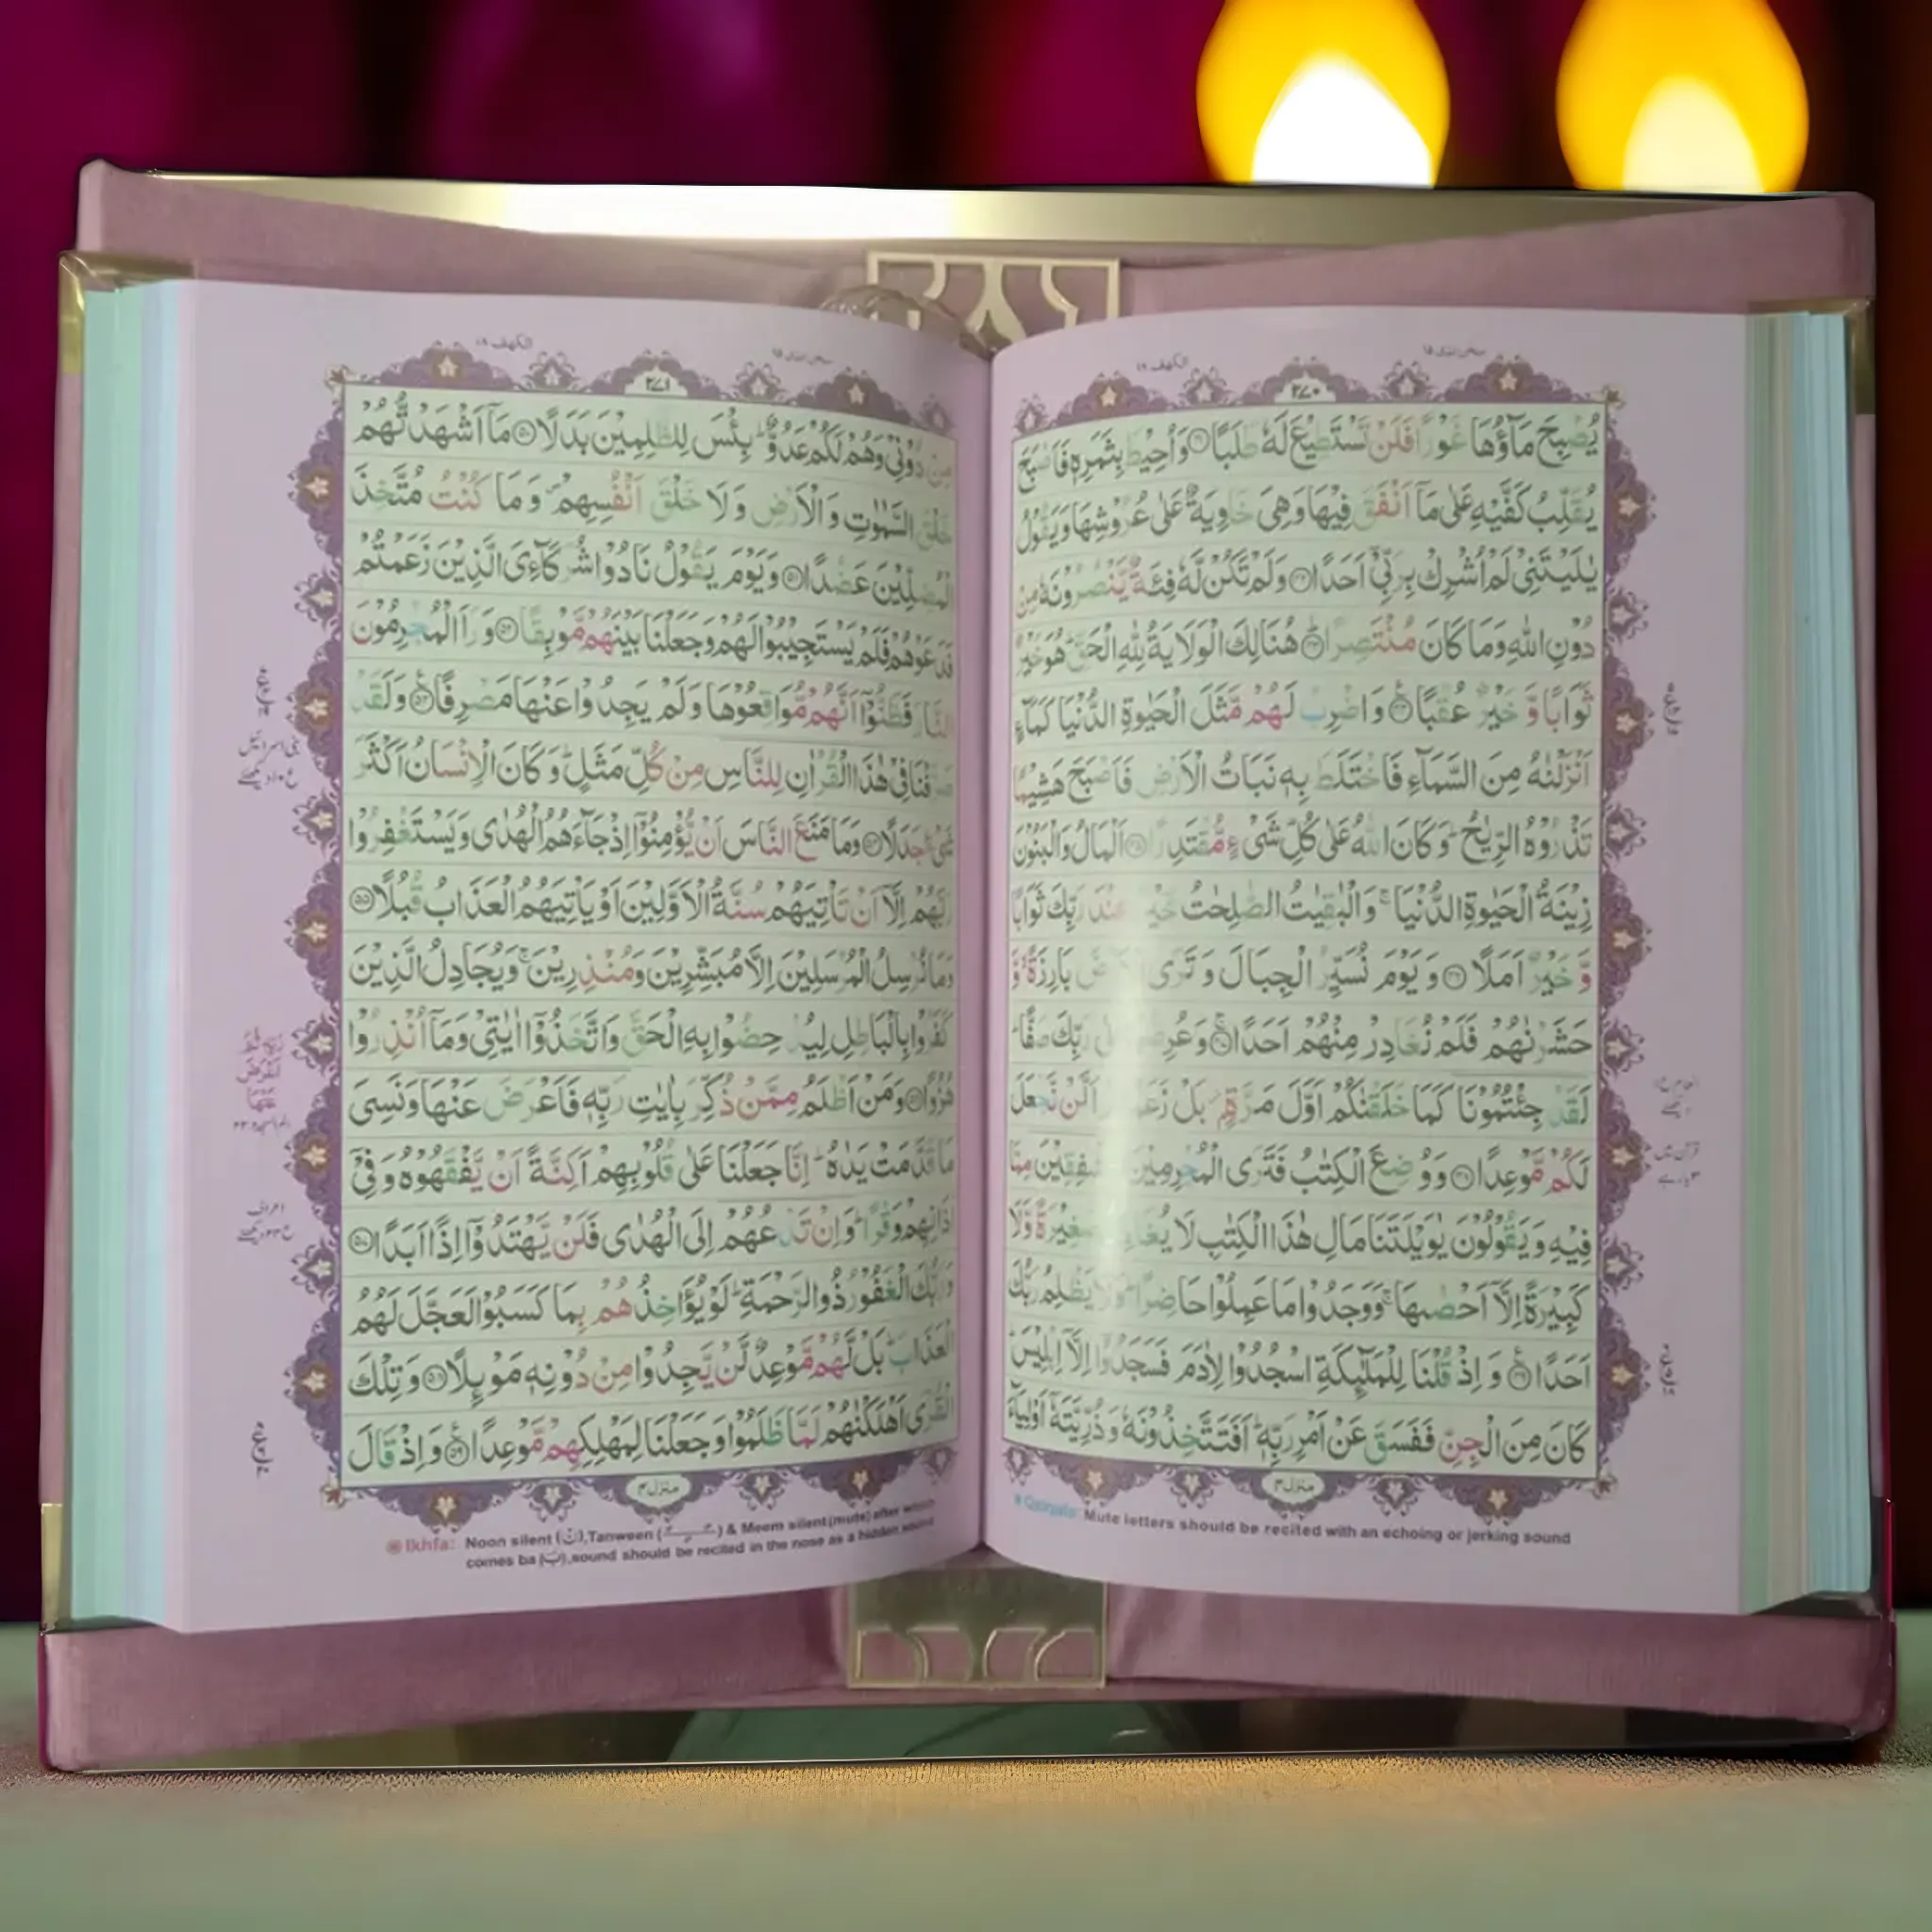 الكهف ١٨
٢٧٠
يُصْبِحَ مَآؤُهَا غَوْرًا فَلَنْ تَسْتَطِيْعَ لَهٗ طَلَبًا ۝٤١ وَاُحِيْطَ بِثَمَرِهٖ فَاَصْبَحَ
يُقَلِّبُ كَفَّيْهِ عَلٰى مَاۤ اَنْفَقَ فِيْهَا وَهِيَ خَاوِيَةٌ عَلٰى عُرُوْشِهَا وَيَقُوْلُ
يٰلَيْتَنِيْ لَمْ اُشْرِكْ بِرَبِّيْۤ اَحَدًا ۝٤٢ وَلَمْ تَكُنْ لَّهٗ فِئَةٌ يَّنْصُرُوْنَهٗ مِنْ
دُوْنِ اللّٰهِ وَمَا كَانَ مُنْتَصِرًا ۝٤٣ هُنَالِكَ الْوَلَايَةُ لِلّٰهِ الْحَقِّ ؕ هُوَ خَيْرٌ
ثَوَابًا وَّ خَيْرٌ عُقْبًا ۝٤٤ وَاضْرِبْ لَهُمْ مَّثَلَ الْحَيٰوةِ الدُّنْيَا كَمَآءٍ
اَنْزَلْنٰهُ مِنَ السَّمَآءِ فَاخْتَلَطَ بِهٖ نَبَاتُ الْاَرْضِ فَاَصْبَحَ هَشِيْمًا
تَذْرُوْهُ الرِّيٰحُ ؕ وَكَانَ اللّٰهُ عَلٰى كُلِّ شَيْءٍ مُّقْتَدِرًا ۝٤٥ اَلْمَالُ وَالْبَنُوْنَ
زِيْنَةُ الْحَيٰوةِ الدُّنْيَا ۚ وَالْبٰقِيٰتُ الصّٰلِحٰتُ خَيْرٌ عِنْدَ رَبِّكَ ثَوَابًا
وَّ خَيْرٌ اَمَلًا ۝٤٦ وَيَوْمَ نُسَيِّرُ الْجِبَالَ وَتَرَى الْاَرْضَ بَارِزَةً ۙ وَّ
حَشَرْنٰهُمْ فَلَمْ نُغَادِرْ مِنْهُمْ اَحَدًا ۝٤٧ وَعُرِضُوْا عَلٰى رَبِّكَ صَفًّا ؕ
لَقَدْ جِئْتُمُوْنَا كَمَا خَلَقْنٰكُمْ اَوَّلَ مَرَّةٍۭ ؗ بَلْ زَعَمْتُمْ اَلَّنْ نَّجْعَلَ
لَكُمْ مَّوْعِدًا ۝٤٨ وَوُضِعَ الْكِتٰبُ فَتَرَى الْمُجْرِمِيْنَ مُشْفِقِيْنَ مِمَّا
فِيْهِ وَيَقُوْلُوْنَ يٰوَيْلَتَنَا مَالِ هٰذَا الْكِتٰبِ لَا يُغَادِرُ صَغِيْرَةً وَّلَا
كَبِيْرَةً اِلَّاۤ اَحْصٰىهَا ۚ وَوَجَدُوْا مَا عَمِلُوْا حَاضِرًا ؕ وَلَا يَظْلِمُ رَبُّكَ
اَحَدًا ۝٤٩ وَاِذْ قُلْنَا لِلْمَلٰٓئِكَةِ اسْجُدُوْا لِاٰدَمَ فَسَجَدُوْۤا اِلَّاۤ اِبْلِيْسَ ؕ
كَانَ مِنَ الْجِنِّ فَفَسَقَ عَنْ اَمْرِ رَبِّهٖ ؕ اَفَتَتَّخِذُوْنَهٗ وَذُرِّيَّتَهٗۤ اَوْلِيَآءَ
منزل ٤
Qalqala: Mute letters should be recited with an echoing or jerking sound
الكهف ١٨
٢٧١
مِنْ دُوْنِيْ وَهُمْ لَكُمْ عَدُوٌّ ؕ بِئْسَ لِلظّٰلِمِيْنَ بَدَلًا ۝٥٠ مَاۤ اَشْهَدْتُّهُمْ
خَلْقَ السَّمٰوٰتِ وَالْاَرْضِ وَلَا خَلْقَ اَنْفُسِهِمْ ۪ وَمَا كُنْتُ مُتَّخِذَ
الْمُضِلِّيْنَ عَضُدًا ۝٥١ وَيَوْمَ يَقُوْلُ نَادُوْا شُرَكَآءِيَ الَّذِيْنَ زَعَمْتُمْ
فَدَعَوْهُمْ فَلَمْ يَسْتَجِيْبُوْا لَهُمْ وَجَعَلْنَا بَيْنَهُمْ مَّوْبِقًا ۝٥٢ وَرَاَ الْمُجْرِمُوْنَ
النَّارَ فَظَنُّوْۤا اَنَّهُمْ مُّوَاقِعُوْهَا وَلَمْ يَجِدُوْا عَنْهَا مَصْرِفًا ۝٥٣ وَلَقَدْ
صَرَّفْنَا فِيْ هٰذَا الْقُرْاٰنِ لِلنَّاسِ مِنْ كُلِّ مَثَلٍ ؕ وَكَانَ الْاِنْسَانُ اَكْثَرَ
شَيْءٍ جَدَلًا ۝٥٤ وَمَا مَنَعَ النَّاسَ اَنْ يُّؤْمِنُوْۤا اِذْ جَآءَهُمُ الْهُدٰى وَيَسْتَغْفِرُوْا
رَبَّهُمْ اِلَّاۤ اَنْ تَاْتِيَهُمْ سُنَّةُ الْاَوَّلِيْنَ اَوْ يَاْتِيَهُمُ الْعَذَابُ قُبُلًا ۝٥٥
وَمَا نُرْسِلُ الْمُرْسَلِيْنَ اِلَّا مُبَشِّرِيْنَ وَمُنْذِرِيْنَ ۚ وَيُجَادِلُ الَّذِيْنَ
كَفَرُوْا بِالْبَاطِلِ لِيُدْحِضُوْا بِهِ الْحَقَّ وَاتَّخَذُوْۤا اٰيٰتِيْ وَمَاۤ اُنْذِرُوْا
هُزُوًا ۝٥٦ وَمَنْ اَظْلَمُ مِمَّنْ ذُكِّرَ بِاٰيٰتِ رَبِّهٖ فَاَعْرَضَ عَنْهَا وَنَسِيَ
مَا قَدَّمَتْ يَدٰهُ ؕ اِنَّا جَعَلْنَا عَلٰى قُلُوْبِهِمْ اَكِنَّةً اَنْ يَّفْقَهُوْهُ وَفِيْۤ
اٰذَانِهِمْ وَقْرًا ؕ وَاِنْ تَدْعُهُمْ اِلَى الْهُدٰى فَلَنْ يَّهْتَدُوْۤا اِذًا اَبَدًا ۝٥٧
وَرَبُّكَ الْغَفُوْرُ ذُو الرَّحْمَةِ ؕ لَوْ يُؤَاخِذُهُمْ بِمَا كَسَبُوْا لَعَجَّلَ لَهُمُ
الْعَذَابَ ؕ بَلْ لَّهُمْ مَّوْعِدٌ لَّنْ يَّجِدُوْا مِنْ دُوْنِهٖ مَوْئِلًا ۝٥٨ وَتِلْكَ
الْقُرٰۤى اَهْلَكْنٰهُمْ لَمَّا ظَلَمُوْا وَجَعَلْنَا لِمَهْلِكِهِمْ مَّوْعِدًا ۝٥٩ وَاِذْ قَالَ
منزل ٤
Ikhfa: Noon silent (نْ),Tanween (ــًـــٍـــٌـ) & Meem silent(mute) after which
comes ba (ب),sound should be recited in the nose as a hidden sound